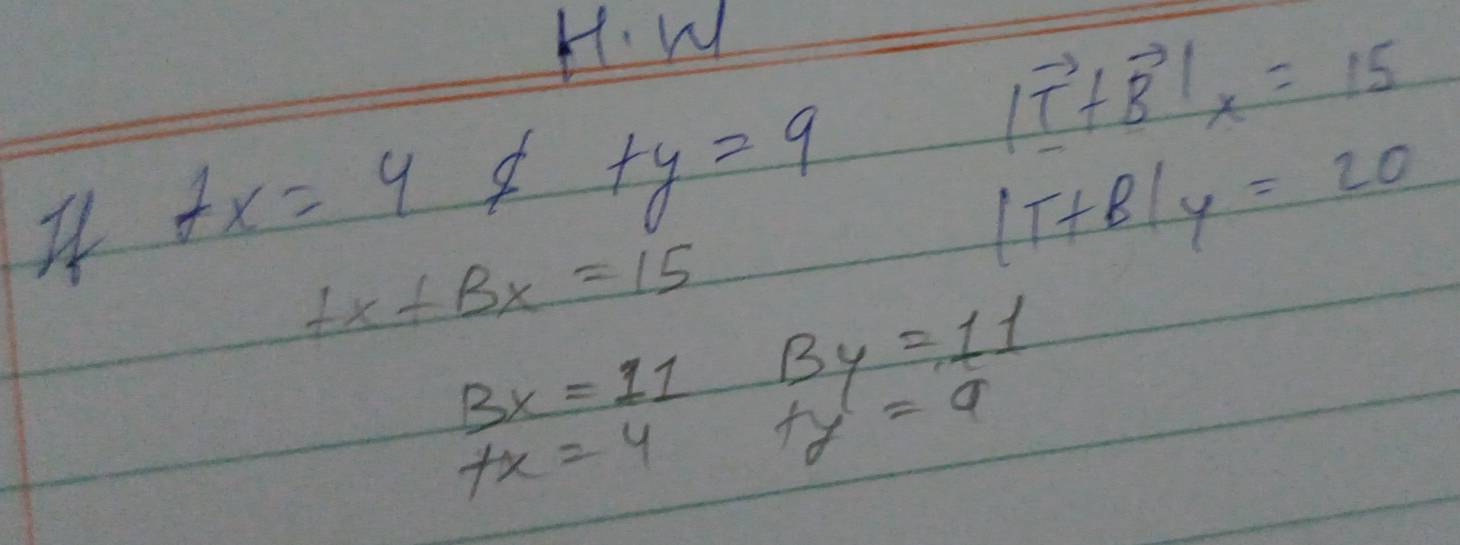 H.W
If tx = 4 & ty = 9 |T⃗+B⃗|x = 15
|T+B|y = 20
tx + Bx = 15
Bx = 11 By = 11
tx = 4 ty = 9